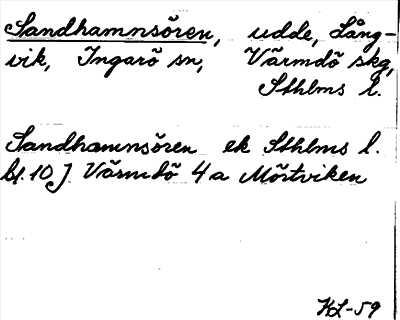 Sandhamnsören, udde, Lång-
vik, Ingarö sn, Värmdö skg,
Sthlms l.
Sandhamnsören ek Sthlms l.
bl. 10 J Värmdö 4a Mörtviken
KL-59